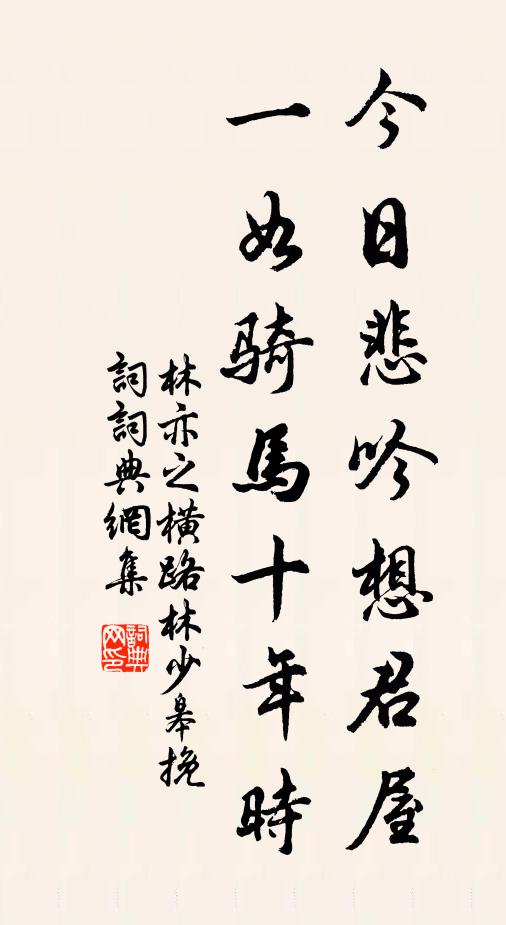 今日悲吟想君屋
一如騎馬十年時
林亦之橫路林少皋挽
詞詞典網集
詞典網印